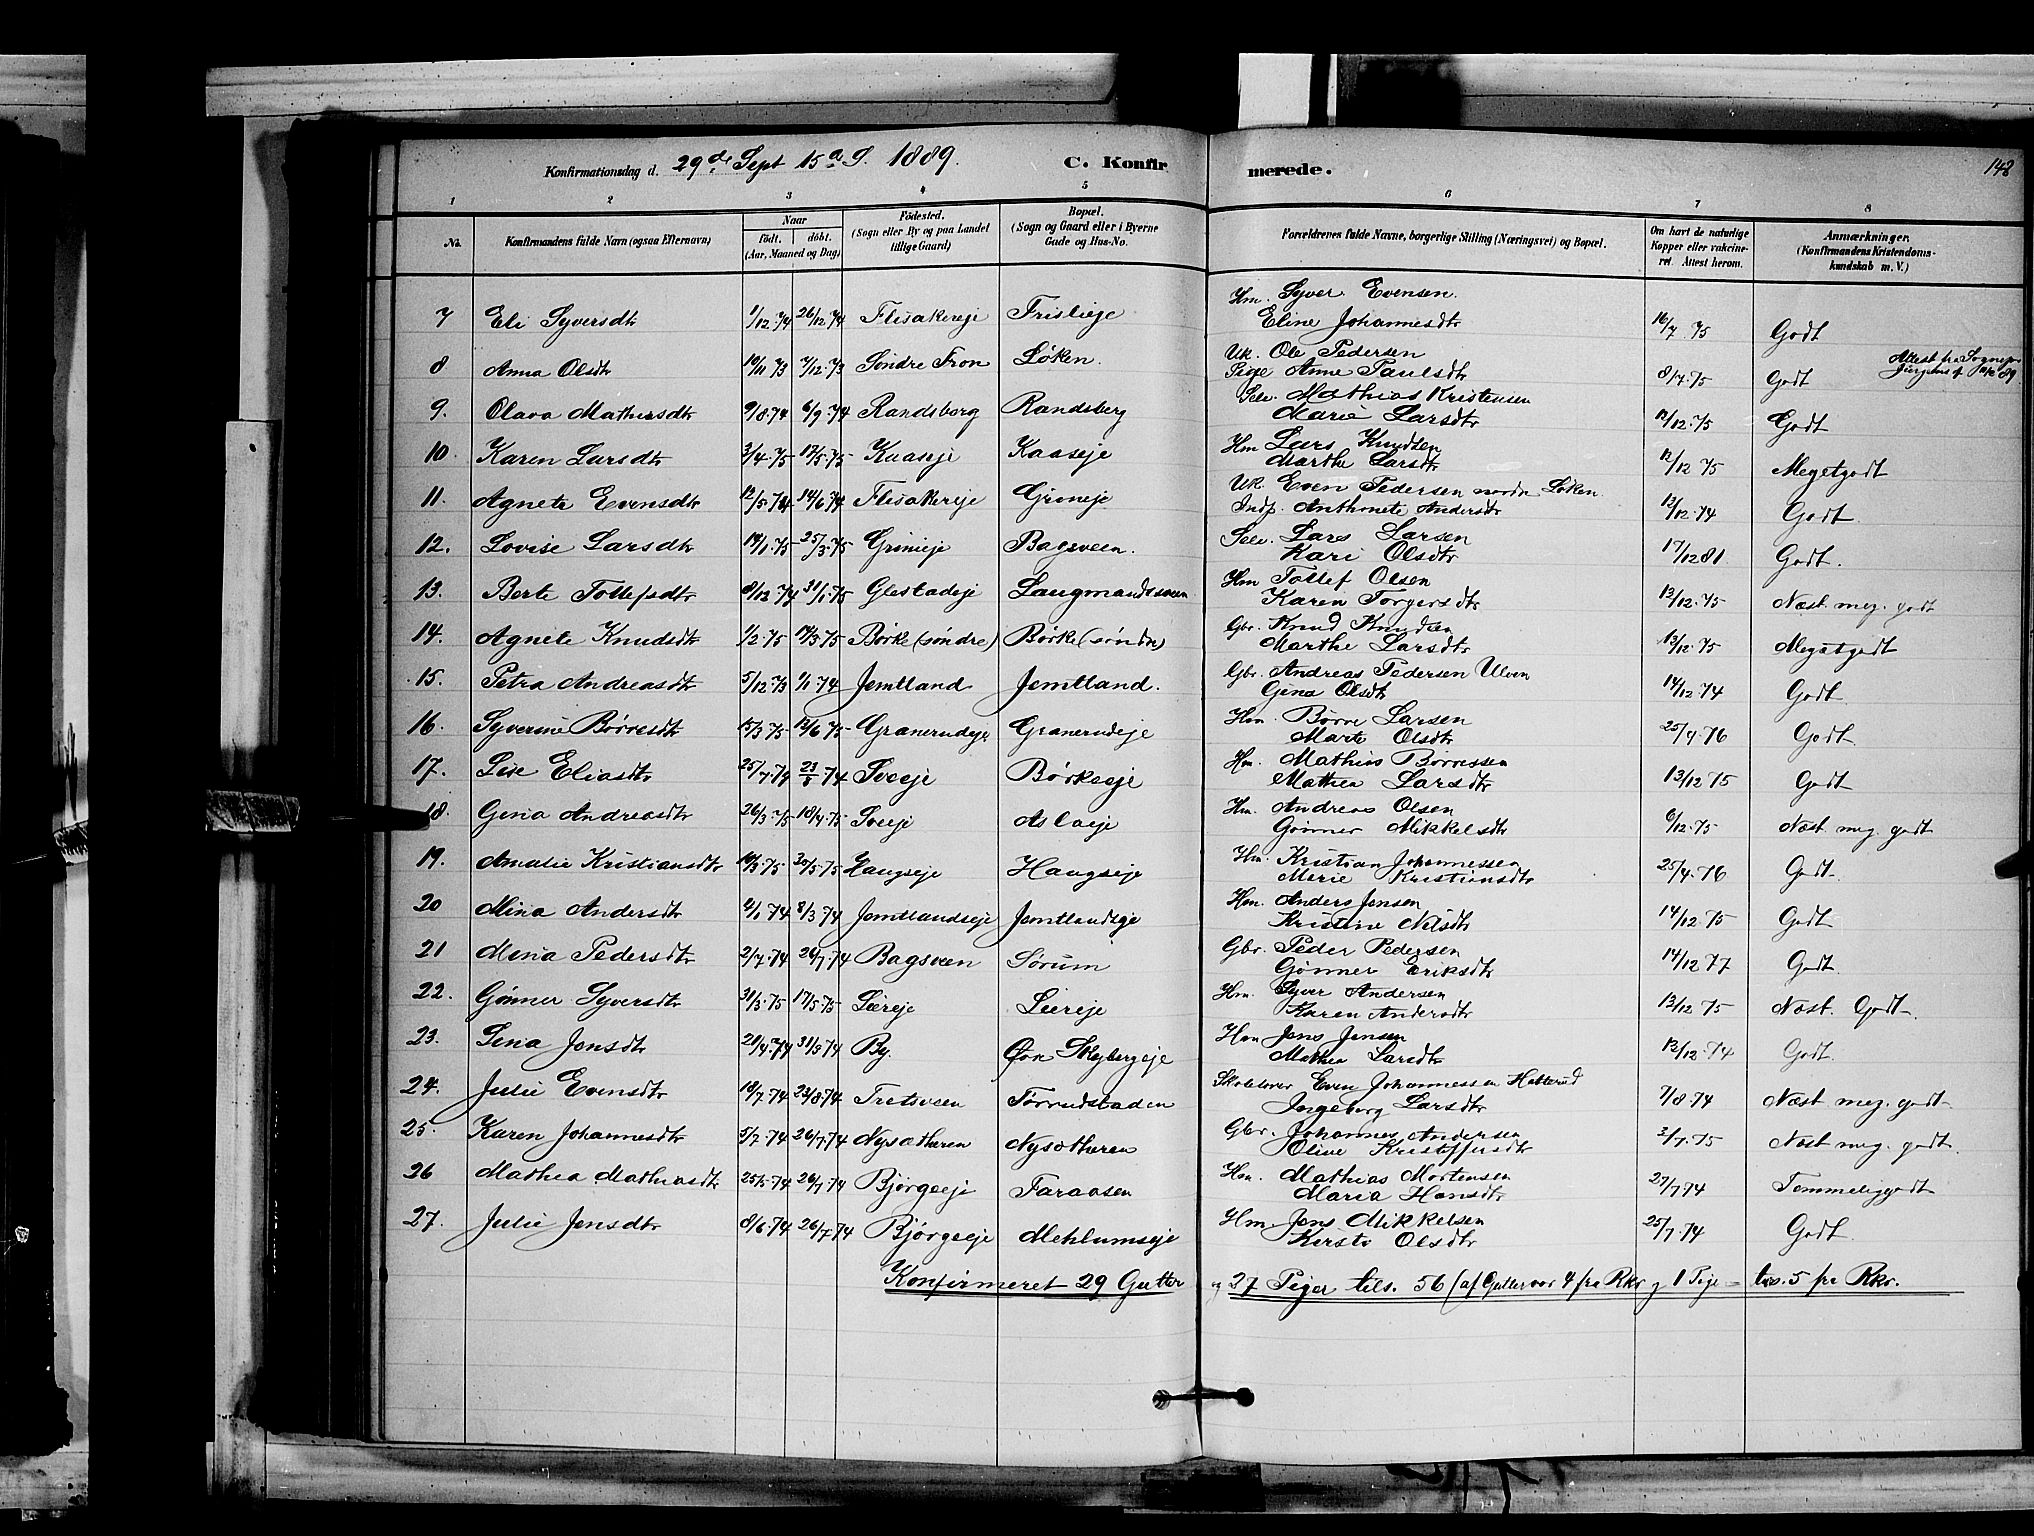 Konfirmationsdag d. 29de Sept 15de S. 1889. C. Konfirmerede. 148
1 2 3 4 5 6 7 8
No. Konfirmandens fulde Navn (ogsaa Efternavn) Naar født. døbt. (Aar, Maaned og Dag) Fødested. (Sogn eller By og paa Landet tillige Gaard) Bopæl. (Sogn og Gaard eller i Byerne Gade og Hus-No. Forældrenes fulde Navne, borgerlige Stilling (Næringsvei) og Bopæl. Om havt de naturlige Kopper eller vakcineret. Attest herom. Anmærkninger. (Konfirmandens Kristendomskundskab m. V.)
7 Eli Syversdtr 1/12 74 26/12 74 Flisakereje Frislieje Hm. Syver Evensen. Eline Johannesdtr 16/7 75 Godt
8 Anna Olsdtr 10/11 73 7/12 73 Søndre Fron Løken. Uk. Ole Pedersen Pige Anne Paulsdtr 8/7 75 Godt Attest fra Sognepr
9. Olava Mathiasdtr 9/8 74 6/9 74 Randsborg Randsberg Selv. Mathias Kristensen Marie Larsdtr 12/12 75 Godt
10. Karen Larsdtr 3/4 75 17/5 75 Kaaseje Kaaseje Hm Lars Knudsen Marthe Larsdtr 12/12 75 Megetgodt
11. Agnete Evensdtr 12/5 74 14/6 74 Flisakereje Grøneje Uk. Even Pedersen nordre Løken. Indp. Anthonete Andersdtr 13/12 74 Godt.
12. Lovise Larsdtr 19/1 75 25/3 75 Grinieje Bagsveen. Selv. Lars Larsen Kari Olsdtr 17/12 81 Godt.
13. Berte Tollefsdtr 8/12 74 31/1 75 Glestadeje Langmandssveen Hm Tollef Olsen Karen Torgersdtr 13/12 75 Næst. meg. godt
14. Agnete Knudsdtr 1/2 75 14/3 75 Børke (søndre) Børke (søndre) Gbr. Knud Knudsen Marthe Larsdtr 13/12 75 Megetgodt
15. Petra Andreasdtr 5/12 73 1/1 74 Jemtland Jemtland. Gbr. Andreas Pedersen Ulven Gina Olsdtr 14/12 74 Godt
16. Syverine Børresdtr 15/3 75 13/6 75 Granerudeje Granerudeje Hm. Børre Larsen Marte Olsdtr 25/4 76 Godt.
17. Lise Eliasdtr 25/7 74 23/8 74 Sveeje Børkeeje Hm. Mathias Børresen Mathea Larsdtr 13/12 75 Godt
18. Gina Andreasdtr 26/3 75 18/4 75 Sveeje Aslaeje Hm. Andreas Olsen Gønner Mikkelsdtr 6/12 75 Næst meg. godt
19. Amalie Kristiansdtr 10/3 75 30/5 75 Haugseje Haugseje Hm. Kristian Johannessen Merie Kristiansdtr 25/4 76 Godt.
20 Mina Andersdtr 4/1 74 8/3 74 Jemtlandseje Jemtlandseje Hm. Anders Jensen Kristine Nilsdtr 14/12 75 Godt
21 Mina Pedersdtr 2/7 74 26/7 74 Bagsveen Sørum Gbr. Peder Pedersen Gønner Eriksdtr 14/12 77 Godt.
22. Gønner Syversdtr 31/3 75 17/5 75 Liereje Liereje Hm. Syver Andersen Karen Andersdtr 13/12 75 Næst. Godt.
23. Lina Jensdtr 21/4 74 31/5 74 By. Øvre Skybergeje Hm Jens Jensen Mathea Larsdtr 12/12 74 Godt.
24. Julie Evensdtr 18/7 74 23/8 74 Tretsveen Tørrudstaden Skolelærer Even Johannessen Hatterud Ingeborg Larsdtr 7/8 74 Næst meg. godt
25. Karen Johannesdtr 5/7 74 26/7 74 Nysætheren Nysætheren Gbr. Johannes Andersen Oline Kristoffersdtr 3/7 75 Næst meg. godt.
26 Mathea Mathiasdtr 25/5 74 26/7 74 Bjørgeeje Faraasen Hm. Mathias Mortensen Maria Hansdtr 27/7 74 Temmeliggodt
27. Julie Jensdtr 8/6 74 26/7 74 Bjørgeeje Mehlumseje Hm Jens Mikkelsen Kersti Olsdtr 25/7 74 Godt.
Konfirmeret 29 Gutter og 27 Piger tils. 56 (af Gutter var 4 fra Rkr og 1 Pige = tils. 5 fra Rkr.